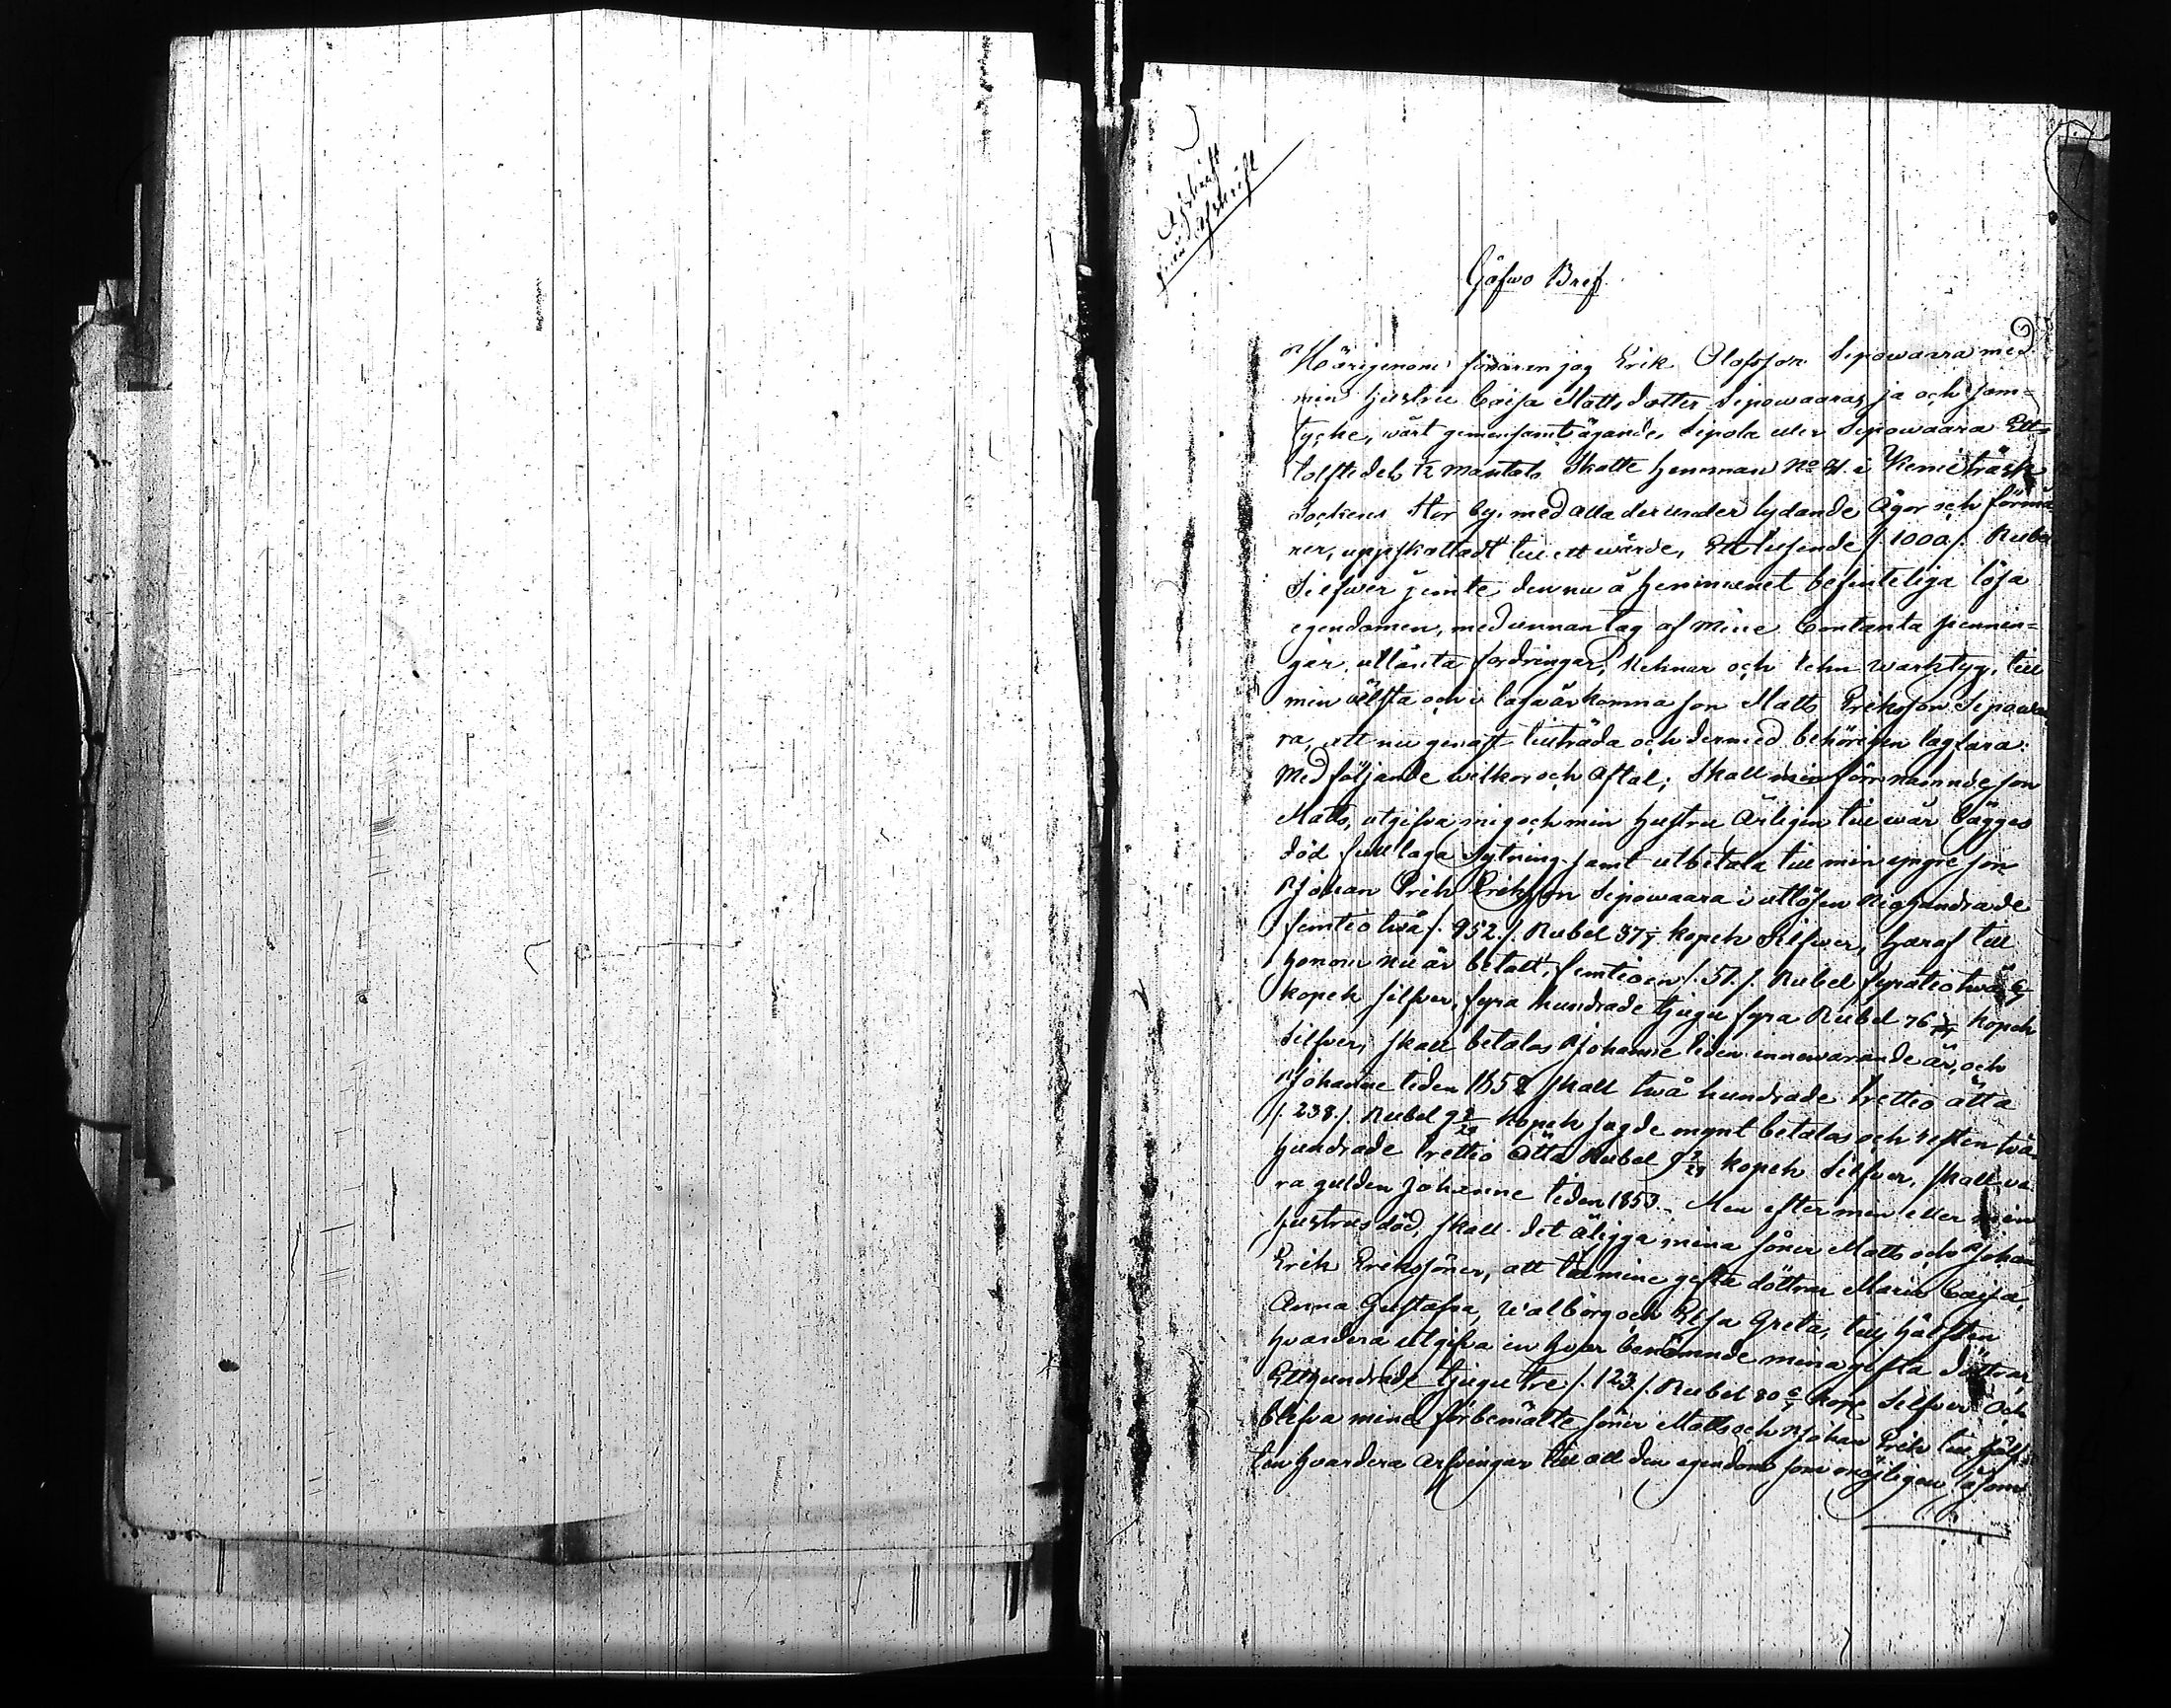 Afskrift
Gåfwo Bref.
Härigenom fordrar jag Erik Olofsson Sipowaara med
min hustru Caisa Mattsdotter Sipowaaras, ja och sam-
tycke, wårt gemensamt ägande, Sipola eller Sipowaara Ett
tolftedels 1/12 mantals Skatte hemman No 21. i Kemiträsk
Sockens Stor by, med alla derunder lydande Ägor och förmå
ner, uppskattadt till ett wärde, Ett tusende /: 1000 /: Rubel
Silfwer jemte den nu å hemmanet befinteliga lösa
egendomen, med unnantag af mine Contanta pennin-
gar, utlånta fordringar, Rehnar och rehn warktyg, till
min älsta och i laga år komna son Matts Eriksson Sipowaa
ra, att nu genast tillträda och dermed behörigen lagfara:
Med följande wilkor och Aftal; Skall min förrnämnde son
Matts, utgifwa mig och min hustru Årligen till wår bägges
död full laga Sytning samt utbetala till min yngre son
Johan Erik Eriksson Sipowaara i utlösen Niohundrade
femtio twå /: 952. /: Rubel 37 1/7 kopek Silfwer, hwaraf till
honom nu är betalt, femtioen /: 51. /: Rubel fyratiotwå 6/7
kopek silfwer, fyra hundrade tjugu fyra Rubel 76 kopek
Silfwer, skall betalas Johanne tiden innewarande år, och
Johanne tiden 1852 skall twå hundrade trettio åtta
/: 238. /: Rubel 9 kopek sagde mynt betalas och resten twå
hundrade trettio åtta Rubel 9 kopek Silfwer, skall wa
ra gulden Johanne tiden 1853.- Men efter min eller min
hustrus död, skall det åligga mina söner Matts och Johan
Erik Erikssöner, att till mine gifta döttrar Maria Caisa,
Anna Gustafwa, Walborg och Elsa Greta, till hälften
hwardera utgifwa en hwar benämnde mina gifta döttrar,
Etthundrade tjugu tre /: 123 /: Rubel 80 6/7 kope Silfwer. Och
blifwa mine förbemälte söner Matts och Johan Erik till hälf-
ten hwardera arfwingar till all den egendom som möjligen